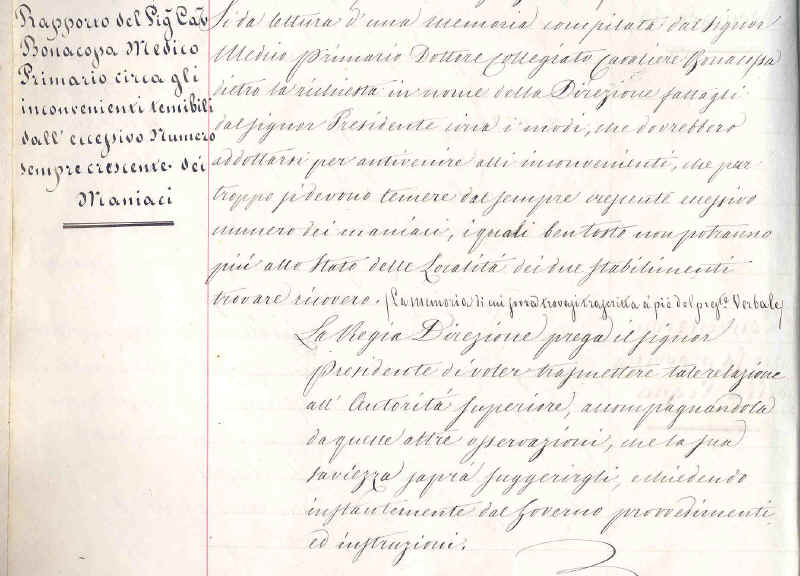 Rapporto del Sig.r Cav.e
Bonacossa Medico
Primario circa gli
inconvenienti temibili
dall' eccessivo Numero
sempre crescente dei
Maniaci
Si dà lettura d'una memoria compilata dal Signor
Medico Primario Dottore Collegiato Cavaliere Bonacossa
dietro la richiesta in nome della Direzione fattagli
dal Signor Presidente circa i modi, che dovrebbero
addottarsi per antivenire alli inconvenienti, che pur
troppo si devono temere dal sempre crescente eccessivo
numero dei maniaci, i quali ben tosto non potranno
più allo Stato delle Località dei due Stabilimenti
trovare ricovero. (La memoria di cui sovra trovasi trascritta a piè del pres.te Verbale)
La Regia Direzione prega il Signor
Presidente di voler trasmettere tale relazione
all' Autorità Superiore, accompagnandola
da quelle altre osservazioni, che la sua
saviezza saprà suggerirgli, chiedendo
instantemente dal Governo provvedimenti
ed instruzioni.